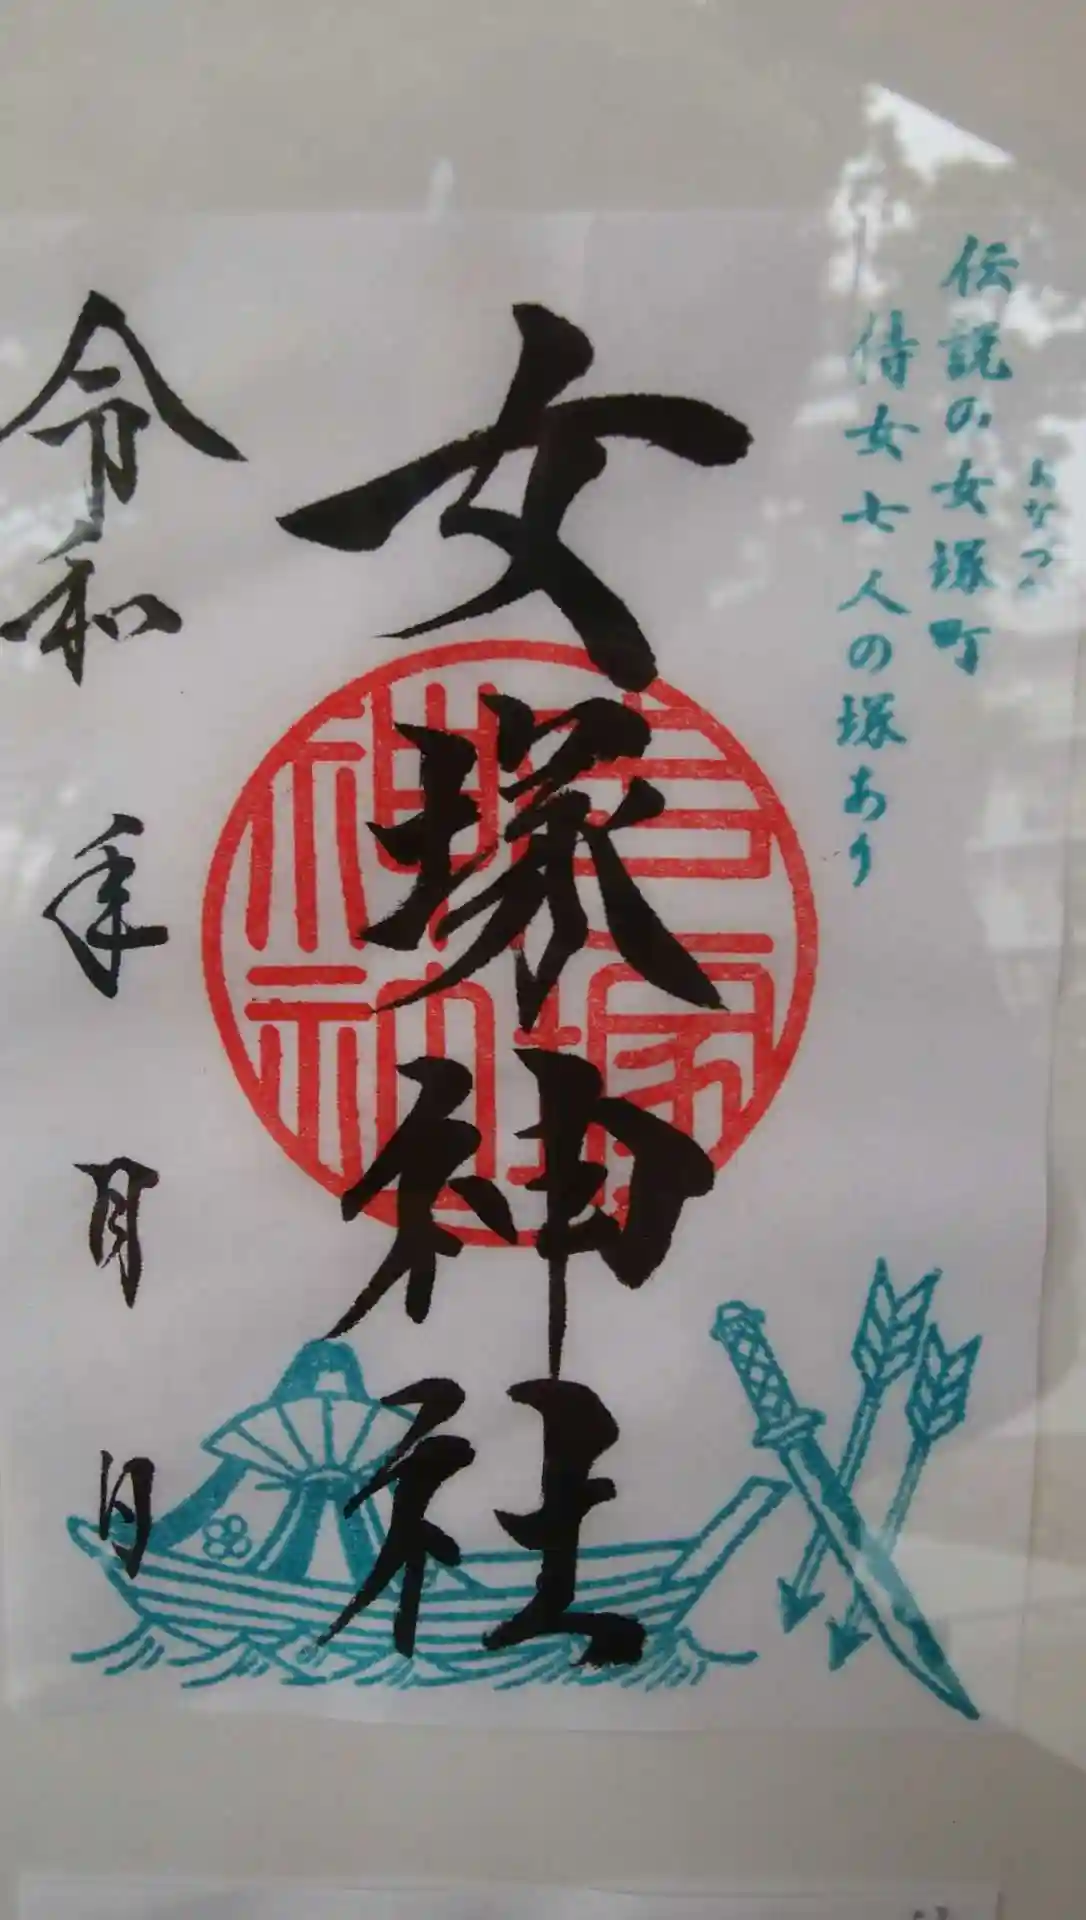 おなづか
伝説の女塚町
侍女七人の塚あり
女塚神社
令和 年 月 日